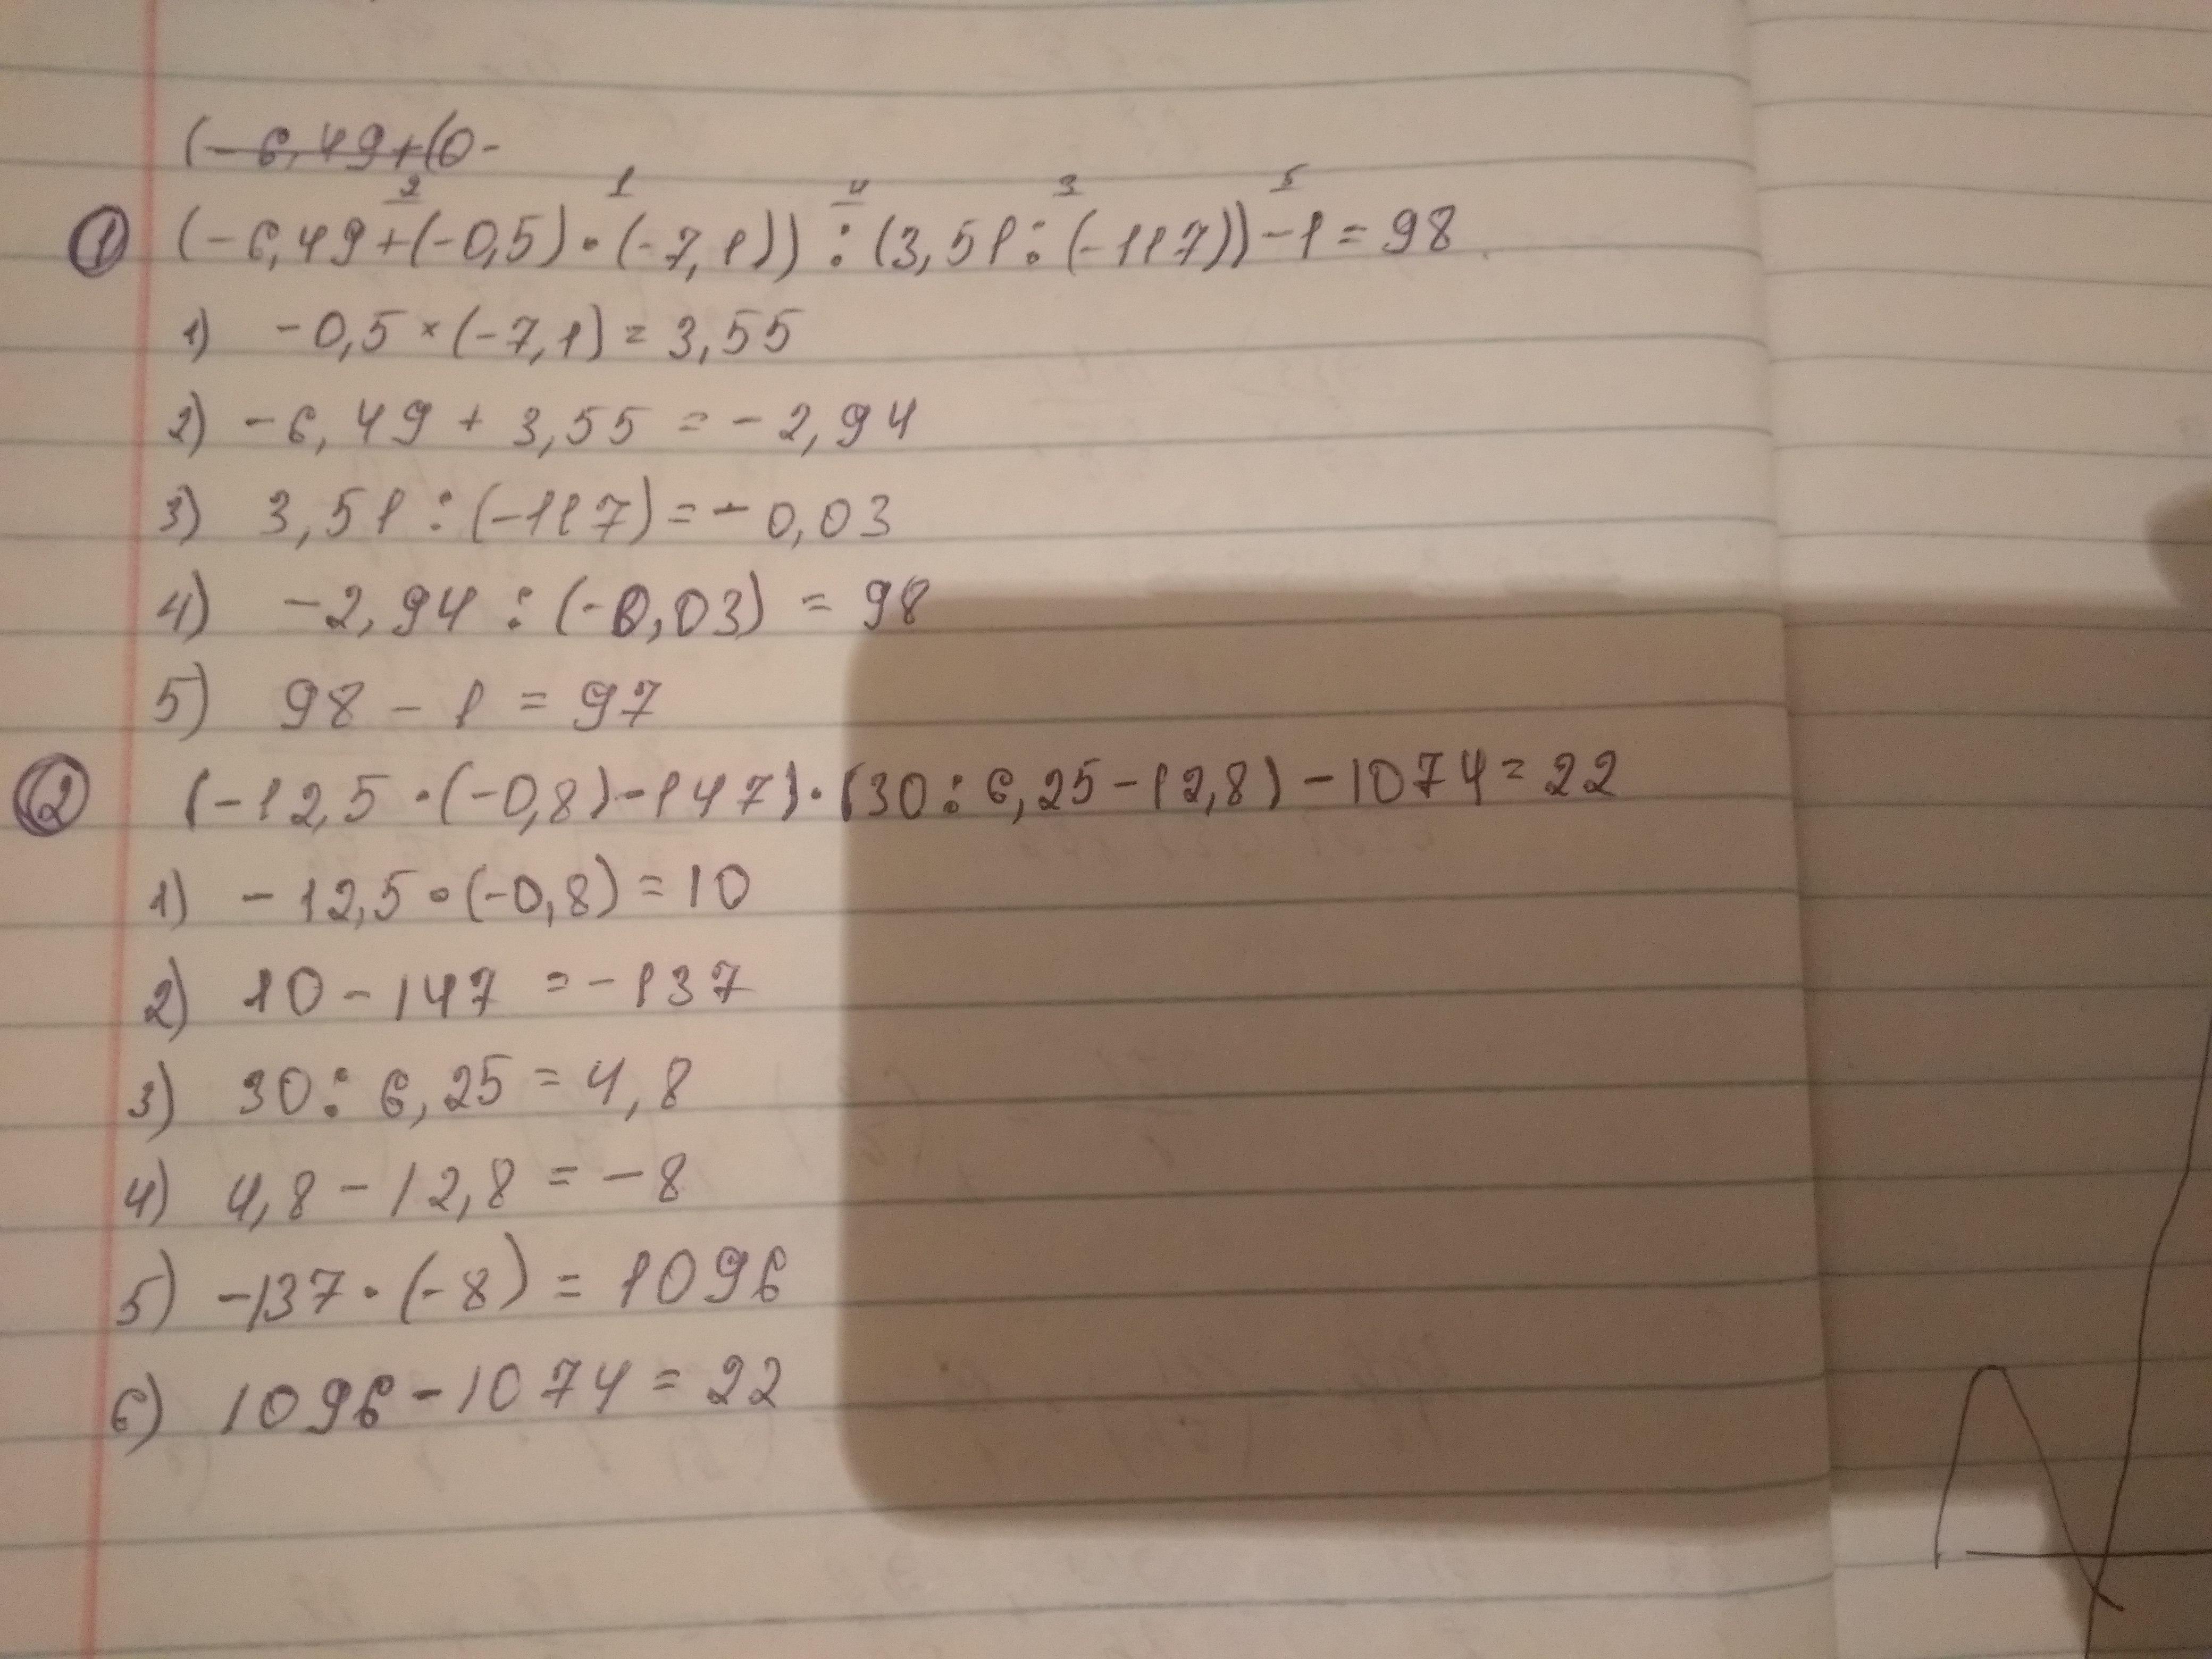 (-6,49+(0-
2 1 4 3 5
① (-6,49+(-0,5)·(-7,1)):(3,51:(-117))-1=98
1) -0,5×(-7,1)=3,55
2) -6,49+3,55=-2,94
3) 3,51:(-117)=-0,03
4) -2,94:(-0,03)=98
5) 98-1=97
② (-12,5·(-0,8)-147)·(30:6,25-12,8)-1074=22
1) -12,5·(-0,8)=10
2) 10-147=-137
3) 30:6,25=4,8
4) 4,8-12,8=-8
5) -137·(-8)=1096
6) 1096-1074=22